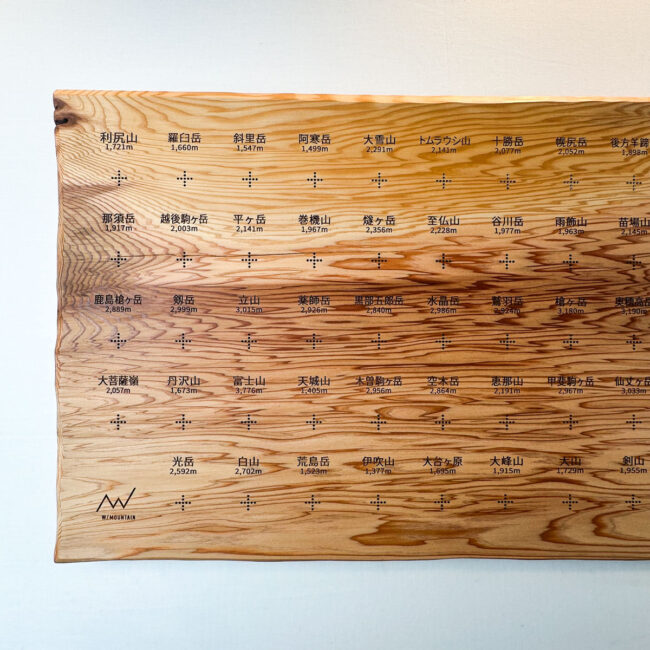 利尻山 羅臼岳 斜里岳 阿寒岳 大雪山 トムラウシ山 十勝岳 幌尻岳 後方羊蹄
1,721m 1,660m 1,547m 1,499m 2,291m 2,141m 2,077m 2,052m 1,898m
那須岳 越後駒ヶ岳 平ヶ岳 巻機山 燧ヶ岳 至仏山 谷川岳 雨飾山 苗場山
1,917m 2,003m 2,141m 1,967m 2,356m 2,228m 1,977m 1,963m 2,145m
鹿島槍ヶ岳 剱岳 立山 薬師岳 黒部五郎岳 水晶岳 鷲羽岳 槍ヶ岳 奥穂高岳
2,889m 2,999m 3,015m 2,926m 2,840m 2,986m 2,924m 3,180m 3,190m
大菩薩嶺 丹沢山 富士山 天城山 木曽駒ヶ岳 空木岳 恵那山 甲斐駒ヶ岳 仙丈ヶ岳
2,057m 1,673m 3,776m 1,405m 2,956m 2,864m 2,191m 2,967m 3,033m
光岳 白山 荒島岳 伊吹山 大台ヶ原 大峰山 大山 剣山
2,592m 2,702m 1,523m 1,377m 1,695m 1,915m 1,729m 1,955m
W/MOUNTAIN